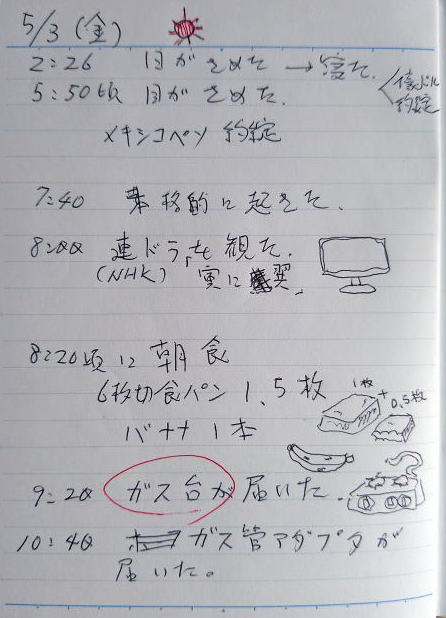 5/3 (金)
2:26 目がさめた → 寝た。
5:50頃 目がさめた。
約定
メキシコペソ 約定
7:40 本格的に起きた。
8:00 連ドラを観た。
(NHK) 「寅に翼」
8:20頃に朝食
6枚切食パン 1.5枚
1枚 + 0.5枚
バナナ 1本
9:20 ガス台が届いた。
10:40 ガス管アダプタが
届いた。